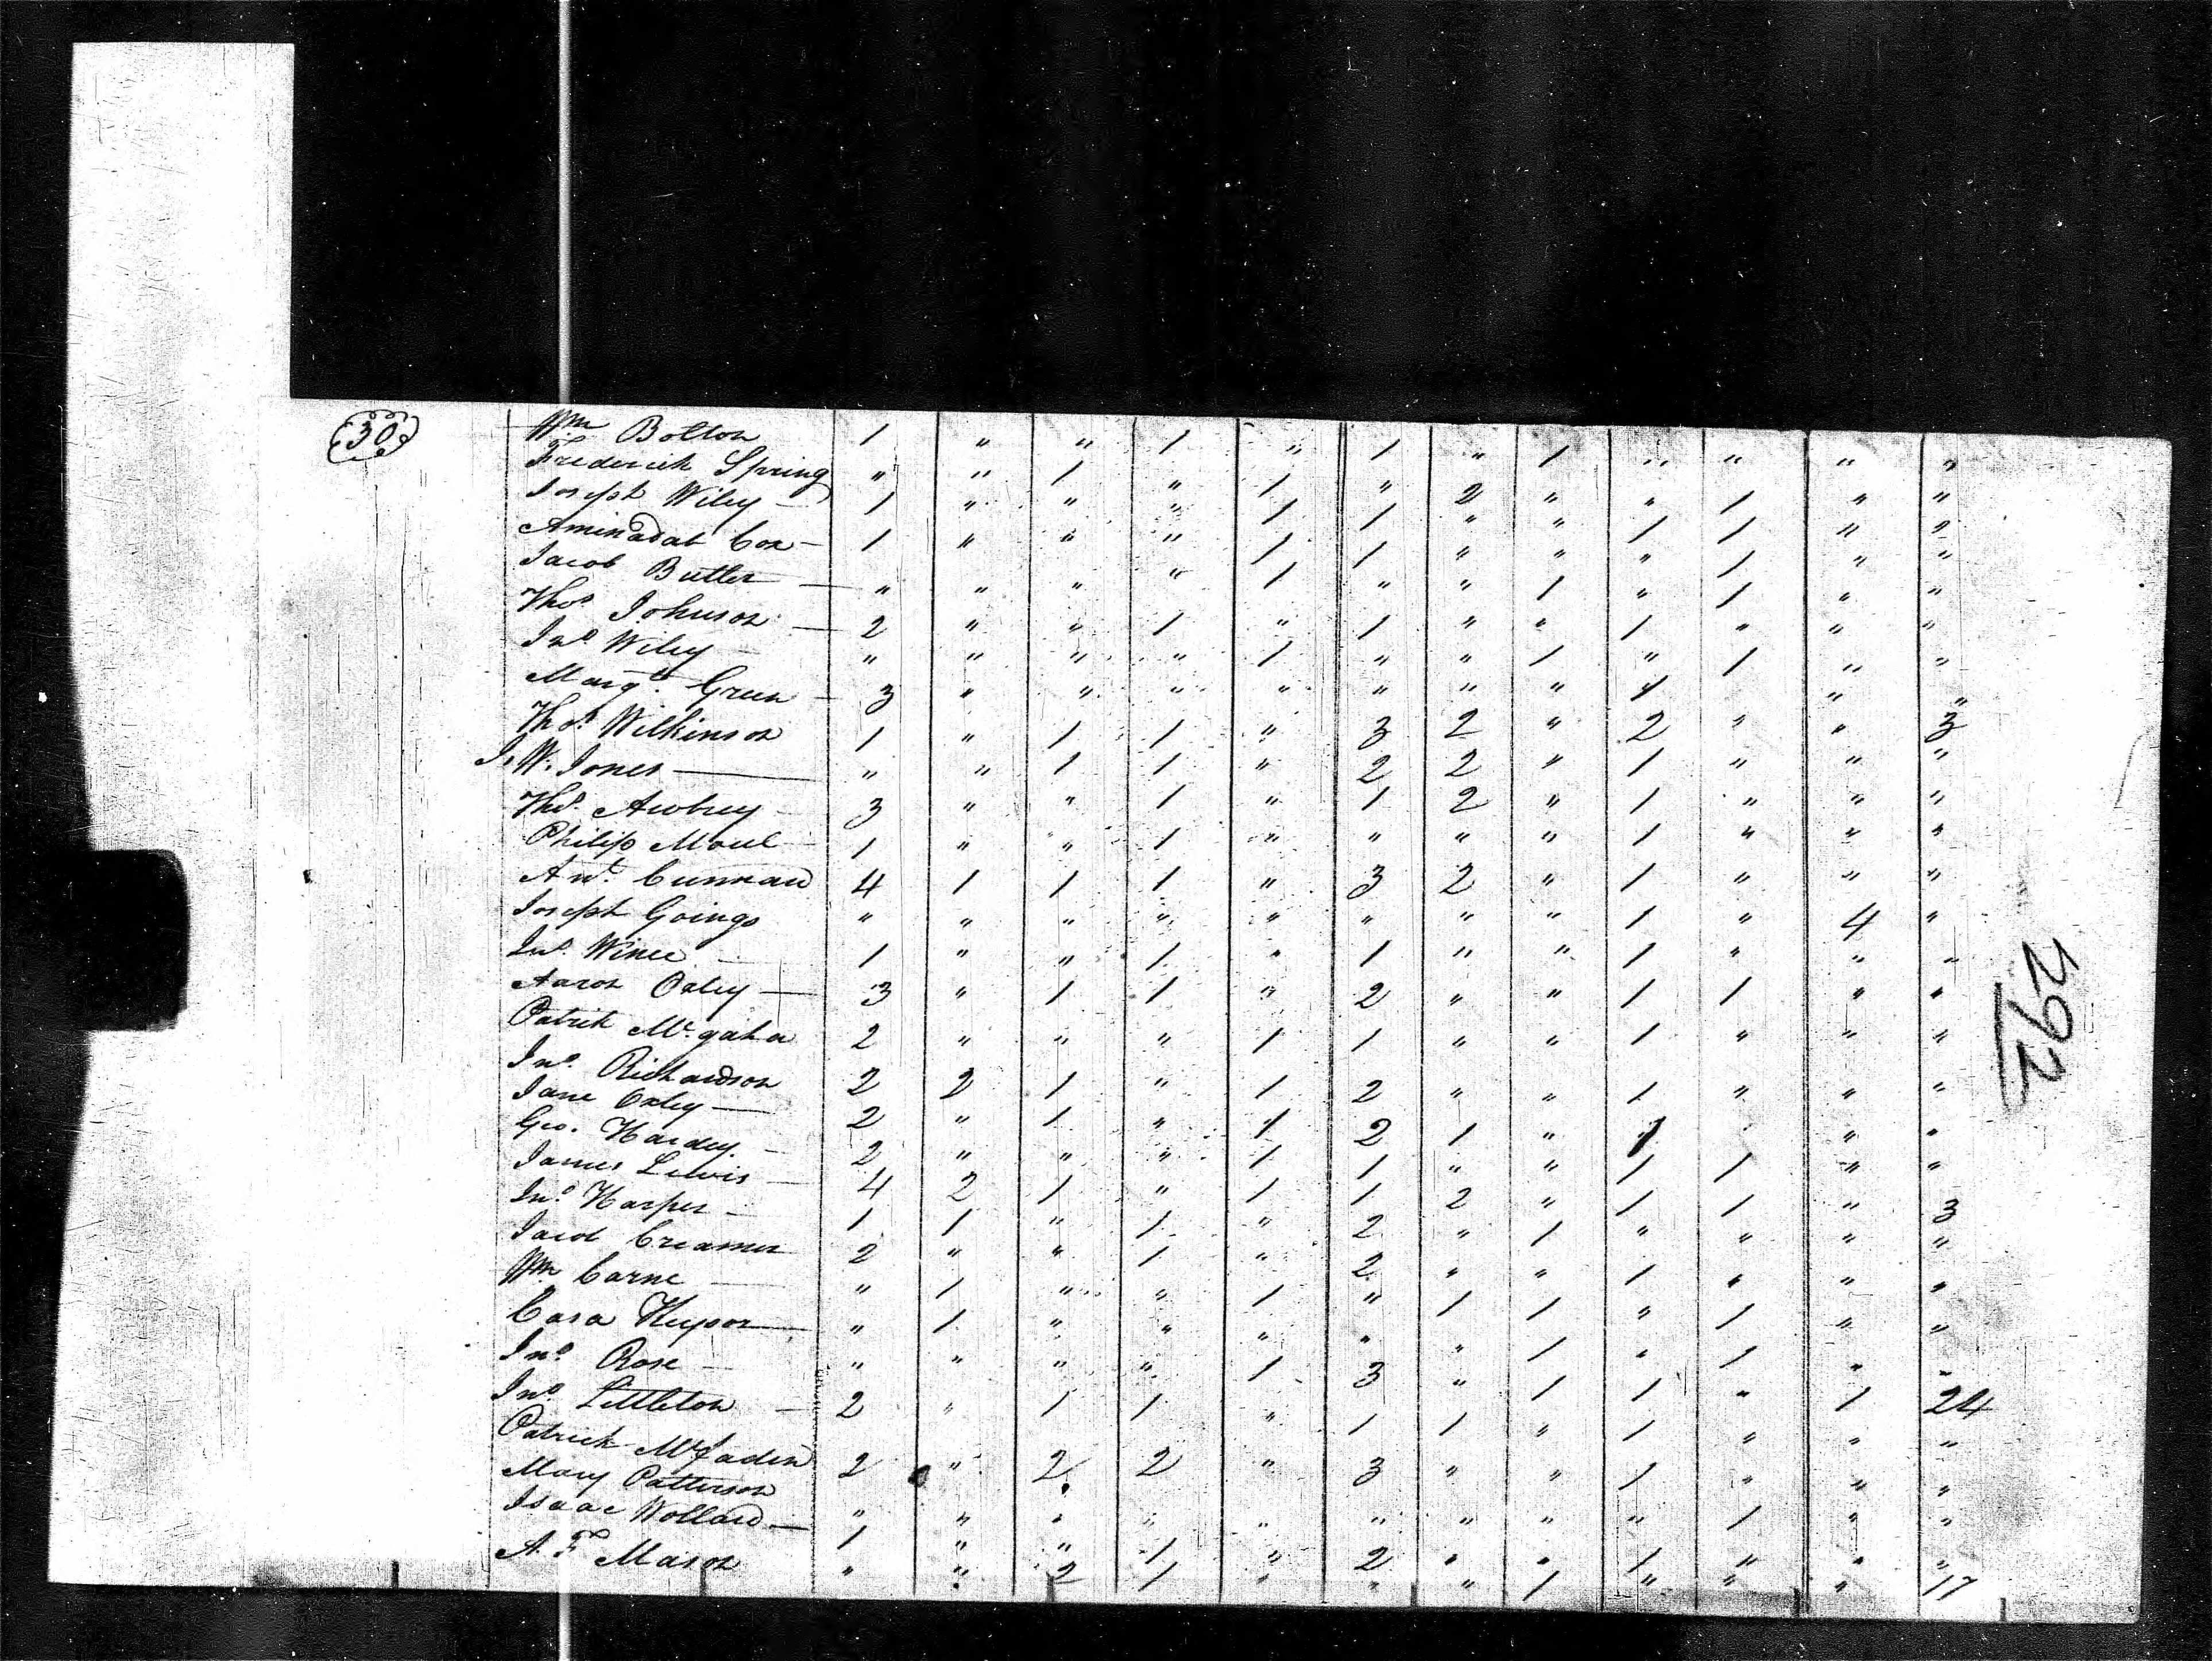 30
Wm Bolton 1 " " 1 " 1 " 1 " " " "
Frederick Spring " " 1 " 1 " 2 " " 1 " "
Joseph Wiley 1 " " " 1 1 " " 1 1 " 2
Aminadab Cox 1 " " " 1 1 " " " 1 " "
Jacob Butler " " " " 1 " " 1 " 1 " "
Thos Johnson 2 " " 1 " 1 " " 1 " " "
Jno Wiley " " " " 1 " " 1 " 1 " "
Margt. Green 3 " " " " " " " 1 " "
Thos. Wilkinson 1 " 1 1 " 3 2 " 2 " " 3
J. W. Jones " " 1 1 " 2 2 " 1 " " "
Thos. Awbrey 3 " " 1 " 1 2 " 1 " " "
Philip Moul 1 " " 1 " " " " 1 " " "
Ant. Cunnard 4 1 1 1 " 3 2 " 1 " " "
Joseph Goings " " " " " " " " 1 " 4 "
Jno. Wince 1 " " 1 " 1 " " 1 " " "
Aaron Oxley 3 " 1 1 " 2 " " 1 1 " "
Patrick Mc.gaha 2 " " " 1 1 " " 1 " " "
Jno. Richardson 2 2 1 " 1 2 " " 1 " " "
Jane Oxley 2 " 1 " 1 2 1 " 1 " " "
Geo. Hardey 2 " " " 1 1 " " 1 1 " "
James Lewis 4 2 1 " 1 1 2 " 1 1 " 3
Jno. Harper 1 1 " 1 " 2 " 1 " " " "
Jacob Creamer 2 " " 1 " 2 " " 1 " " "
Wm Carne " 1 " " 1 " 1 1 " 1 " "
Casa " 1 " " " " " 1 " 1 " "
Jno. Rose " " " " 1 3 " 1 1 " 1 24
Jno. Littleton 2 " 1 1 " 1 1 " 1 " " "
Patrick McFaden 2 " 2 2 " 3 " " 1 " " "
Mary Patterson " " " " " " " " " 1 " "
Isaac Wollard 1 " " 1 " 2 " " 1 " " "
A. F Mason " " 2 1 " " " 1 " " " 17
292